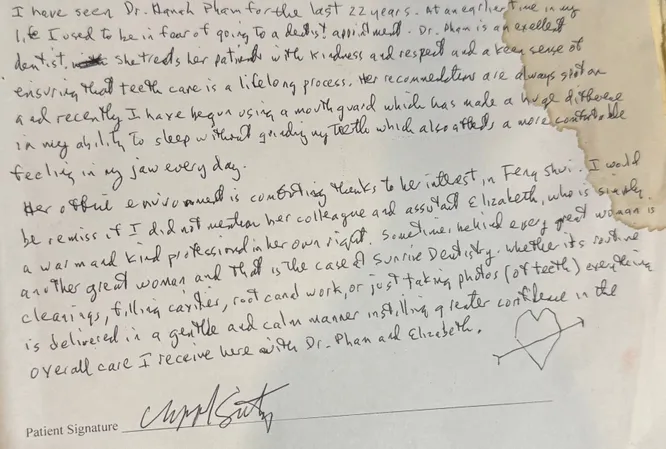 I have seen Dr. Hanah Pham for the last 22 years. At an earlier time in my
life I used to be in fear of going to a dentist appointment. Dr. Pham is an excellent
dentist, she treats her patients with kindness and respect and a keen sense of
ensuring that teeth care is a lifelong process. Her recommendations are always spot on
and recently I have begun using a mouth guard which has made a huge difference
in my ability to sleep without grinding my teeth which also affords a more comfortable
feeling in my jaw every day.
Her office environment is comforting thanks to her interest in Feng Shui. I would
be remiss if I did not mention her colleague and assistant Elizabeth, who is simply
a warm and kind professional in her own right. Sometimes behind every great woman is
another great woman and that is the case at Sunrise Dentistry. Whether its routine
cleanings, filling cavities, root canal work, or just taking photos (of teeth) everything
is delivered in a gentle and calm manner instilling greater confidence in the
overall care I receive here with Dr. Pham and Elizabeth.
Patient Signature